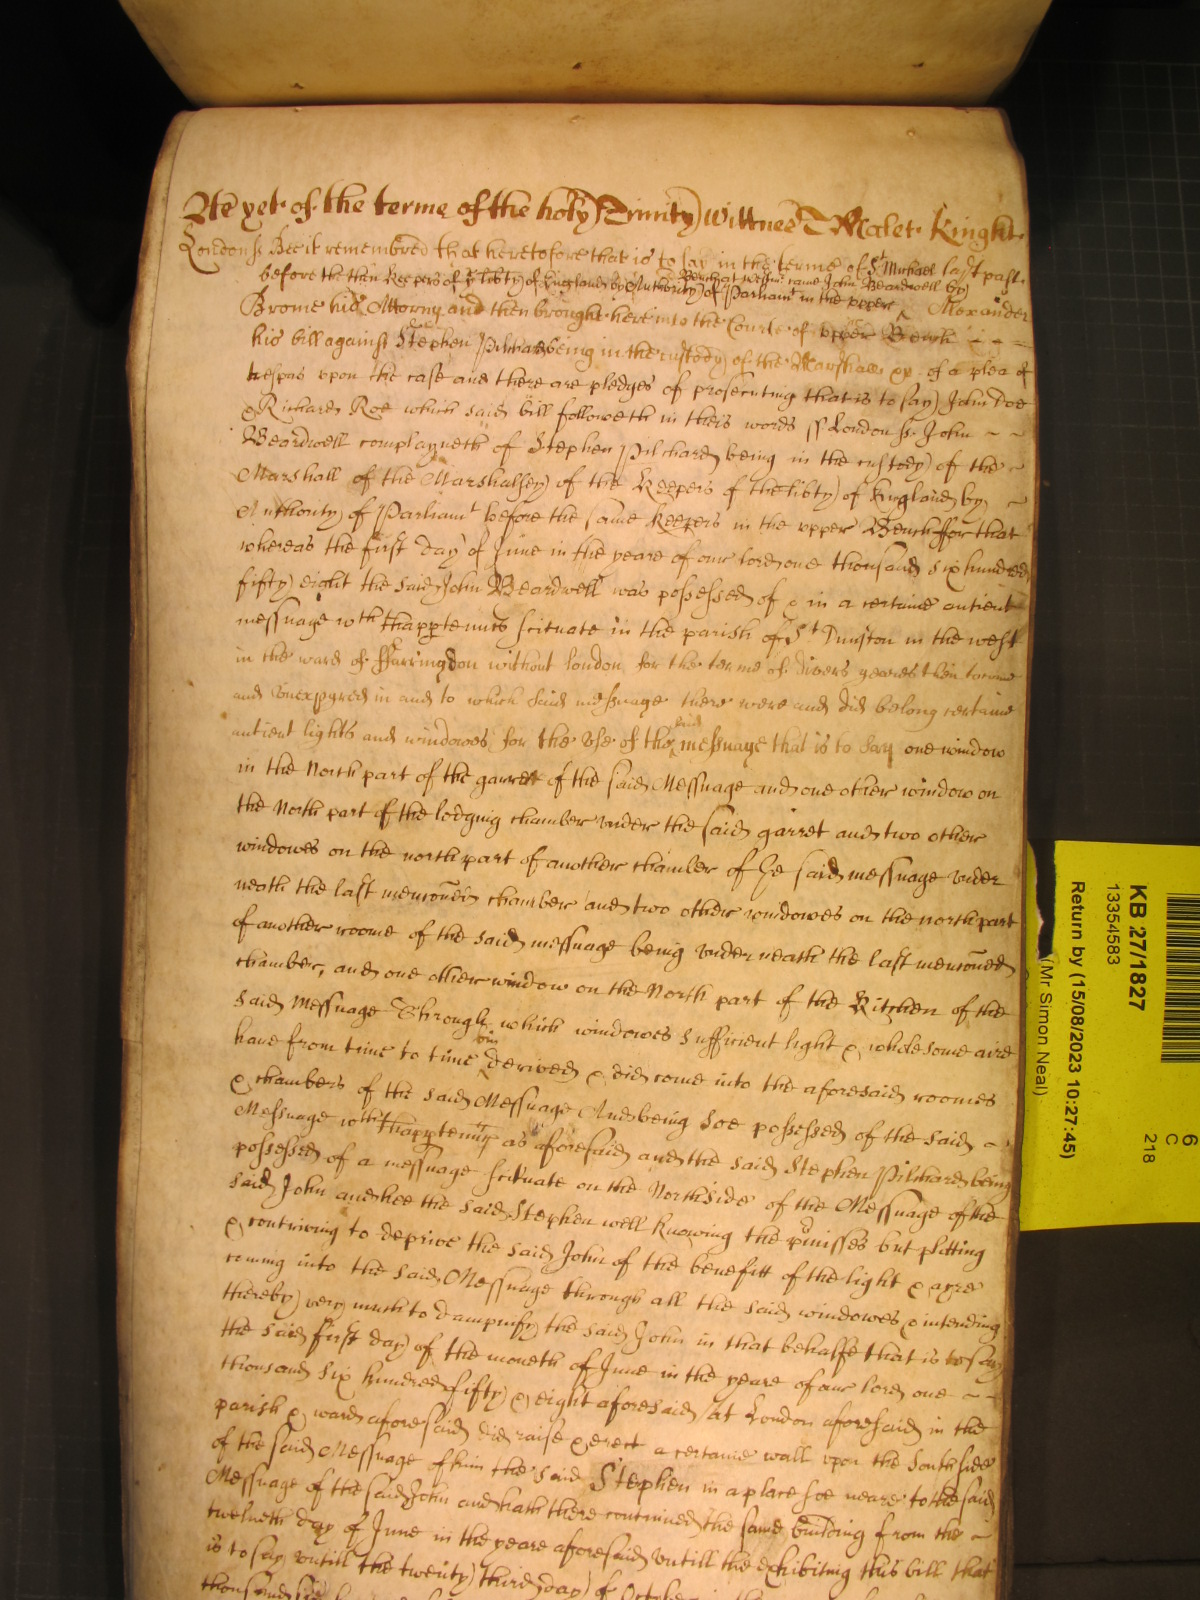 As yet of the terme of the holy Trinity Wittnes T Malet Knight
London ss Bee it remembred that heretofore that is to say in the terme of St Michael last past
before the then Keepers of ye libty of England by Authority of Parliamt in the upper Bench at Westmr came John Beardwell by Alexander
Brome his Attorny and then brought here into the Courte of upper Bench
his bill against Stephen Pilchard being in the custody of the Marshall &c. of a plea of
trespas upon the case and there are pledges of prosecuting that is to say John Doe
& Richard Roe which said bill followeth in theis words ss London ss. John
Beardwell complayneth of Stephen Pilchard being in the custody of the
Marshall of the Marshalsey of the Keepers of the libty of England by
Authority of Parliamt before the same Keepers in the upper Bench ffor that
whereas the first day of June in the yeare of our lord one thousand six hundred
fifty eight the said John Beardwell was possessed of & in a certaine antient
messuage wth thapptenncs scituate in the parish of St Dunston in the west
in the ward of ffarringdon without london for the terme of divers yeares then to come
and unexpyred in and to which said messuage there were and did belong certaine
antient lights and windowes for the use of the said messuage that is to say one window
in the North part of the garrett of the said Messuage and one other window on
the North part of the lodging chamber under the said garret and two other
windowes on the north part of another chamber of the said messuage under
neath the last menconed chamber and two other windowes on the north part
of another roome of the said messuage being under neath the last menconed
chamber, and one other window on the North part of the Kitchen of the
said messuage Through which windowes sufficient light & wholesome aire
have from time to time bin derived & did come into the aforesaid roomes
& chambers of the said Messuage And being soe possessed of the said
Messuage wth thapptenncs as aforesaid and the said Stephen Pilchard being
possessed of a messuage scituate on the North side of the Messuage of the
said John and hee the said Stephen well knowing the pmisses but plotting
& contriving to deprive the said John of the benefitt of the light & ayre
coming into the said Messuage through all the said windowes & intending
thereby very much to dampnify the said John in that behalfe that is to say
the said first day of the moneth of June in the yeare of our lord one
thousand six hundred fifty & eight aforesaid At London aforesaid in the
parish & ward aforesaid did raise & erect a certaine wall upon the South side
of the said Messuage of him the said Stephen in a place soe neare to the said
Messuage of the said John and hath there continued the same building from the
twelveth day of June in the yeare aforesaid untill the exhibiting this bill that
is to say untill the twenty third day of October
thousand six
KB 27/1827
13354583
Return by (15/08/2023 10:27:45)
(Mr Simon Neal)
6
C
218